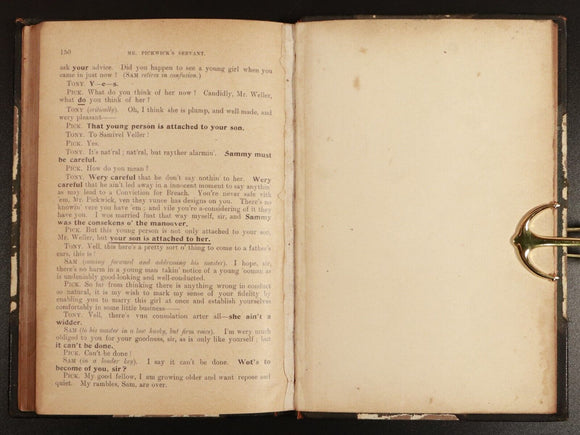 150 MR. PICKWICK'S SERVANT.
ask your advice. Did you happen to see a young girl when you
came in just now? (SAM retires in confusion.)
TONY. Y—e—s.
PICK. What do you think of her now? Candidly, Mr. Weller,
what do you think of her?
TONY (critically). Oh, I think she is plump, and well made, and
wery pleasant——
PICK. That young person is attached to your son.
TONY. To Samivel Veller!
PICK. Yes.
TONY. It's nat'ral; nat'ral, but rayther alarmin'. Sammy must
be careful.
PICK. How do you mean?
TONY. Wery careful that he don't say nothin' to her. Wery
careful that he ain't led away in a innocent moment to say anythin'
as may lead to a Conviction for Breach. You're never safe vith
'em, Mr. Pickwick, ven they vunce has designs on you. There's no
knowin' vere you have 'em; and vile you're a-considering of it they
have you. I was married fust that way myself, sir, and Sammy
was the consekens o' the manoover.
PICK. But this young person is not only attached to your son,
Mr. Weller, but your son is attached to her.
TONY. Vell, this here's a pretty sort o' thing to come to a father's
ears, this is!
SAM (coming forward and addressing his master). I hope, sir,
there's no harm in a young man takin' notice of a young 'ooman as
is undeniably good-looking and well-conducted.
PICK. So far from thinking there is anything wrong in conduct
so natural, it is my wish to mark my sense of your fidelity by
enabling you to marry this girl at once and establish yourselves
comfortably in some little business——
TONY. Vell, there's vun consolation arter all—she ain't a
widder.
SAM (to his master in a low husky, but firm voice). I'm wery much
obliged to you for your goodness, sir, as is only like yourself; but
it can't be done.
PICK. Can't be done!
SAM (in a louder key). I say it can't be done. Wot's to
become of you, sir?
PICK. My good fellow, I am growing older and want repose and
quiet. My rambles, Sam, are over.